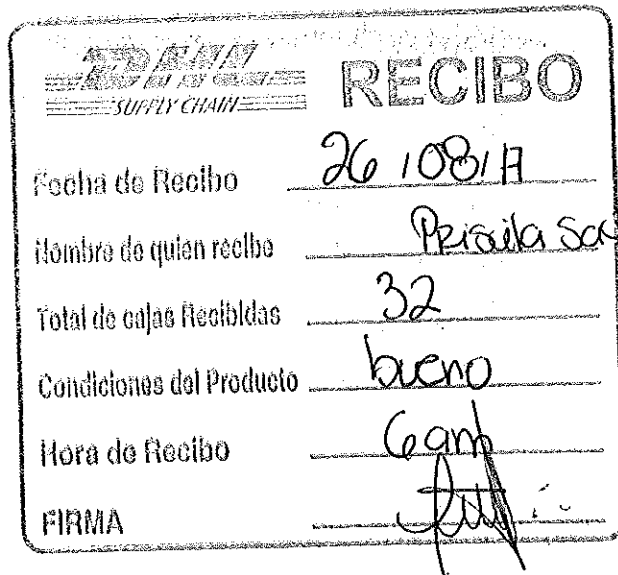 DHL
SUPPLY CHAIN
RECIBO
Fecha de Recibo 26/08/17
Nombre de quien recibe Priscila
Total de cajas Recibidas 32
Condiciones del Producto bueno
Hora de Recibo 6am
FIRMA